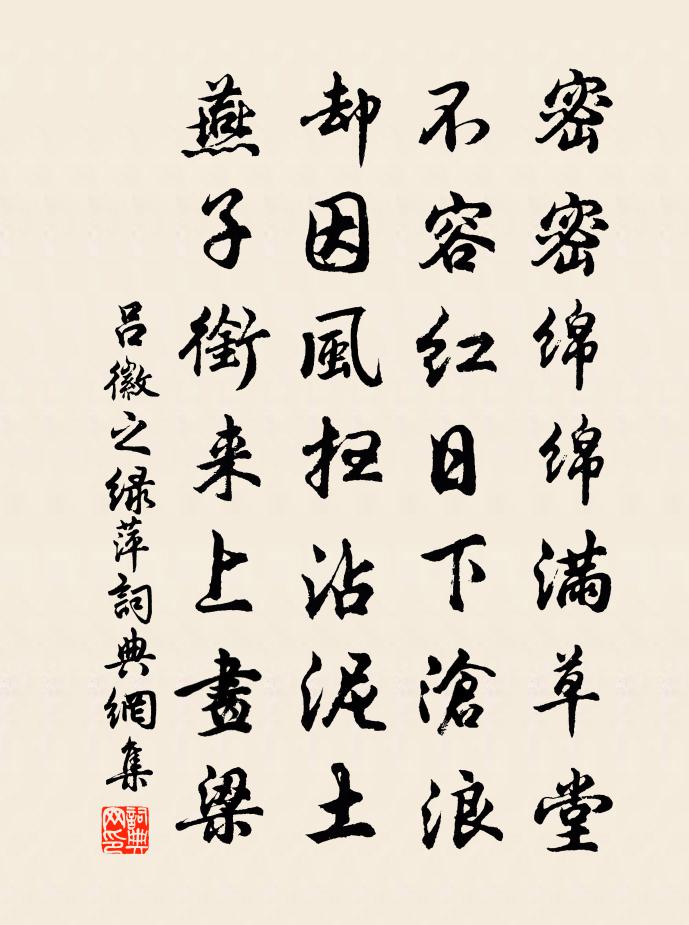 密密绵绵满草堂
不容红日下滄浪
却因風扫沾泥土
燕子銜来上畫梁
吕徽之绿萍詞典網集
詞典网印